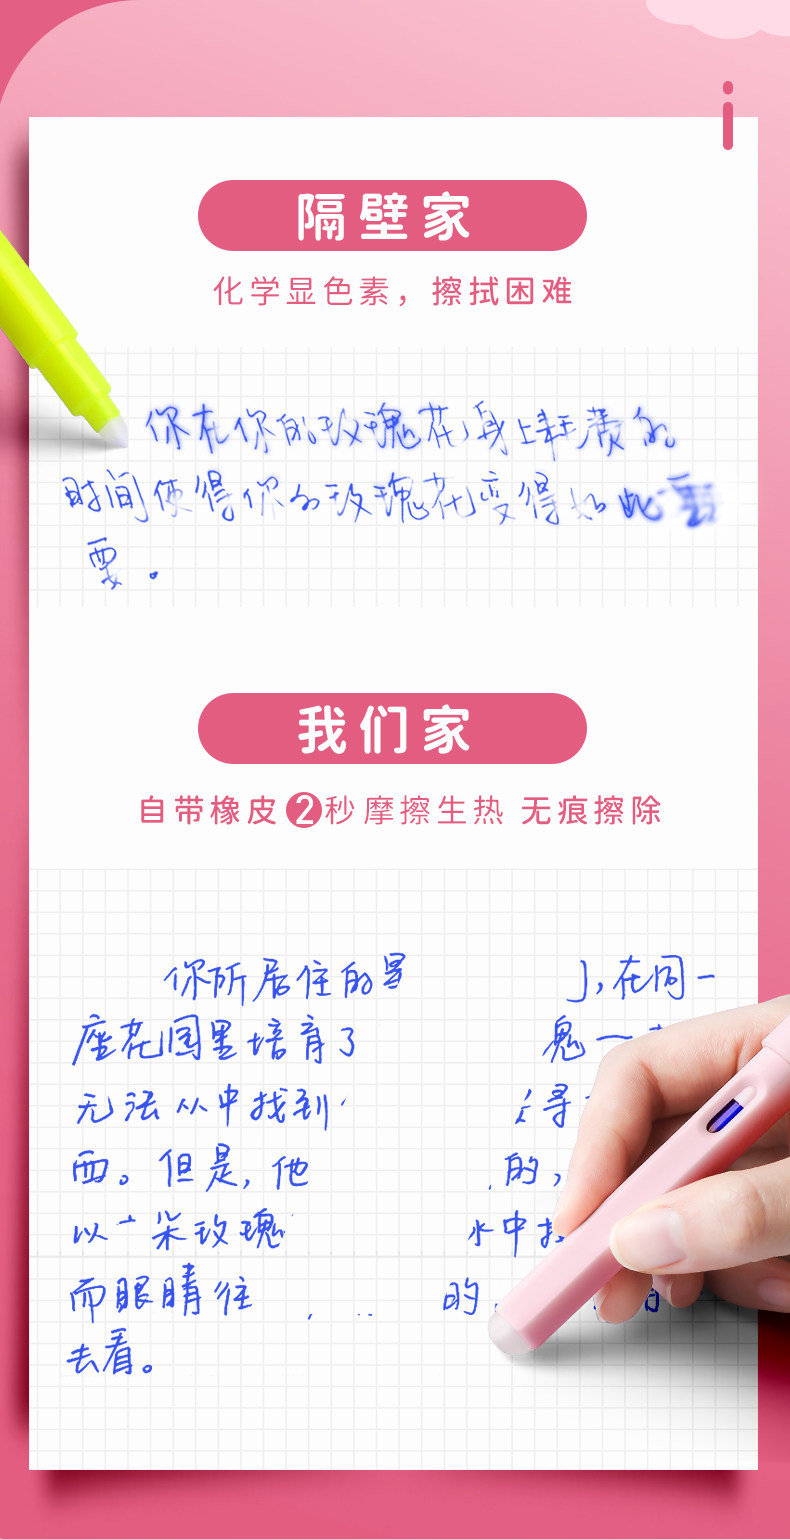 隔壁家
化学显色素，擦拭困难
你在你的玫瑰花身上耗费的
时间使得你的玫瑰花变得如此重
要。
我们家
自带橡皮2秒摩擦生热 无痕擦除
你所居住的星 ，在同一
座花园里培育了
无法从中找到 寻
西。但是，他 的，
以一朵玫瑰 水中找
而眼睛往 的，
去看。